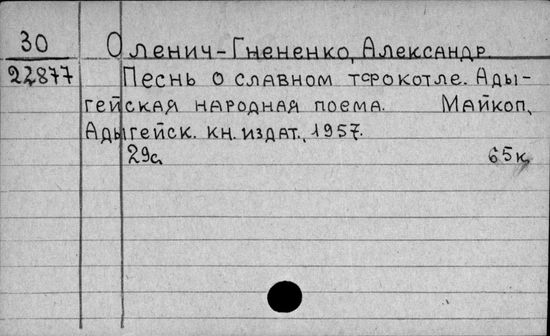 30 Оленич-Гнененко, Александр
22877 Песнь о славном тфокотле. Ады-
гейская народная поема. Майкоп,
Адыгейск. кн. издат., 1957.
29с. 65к.